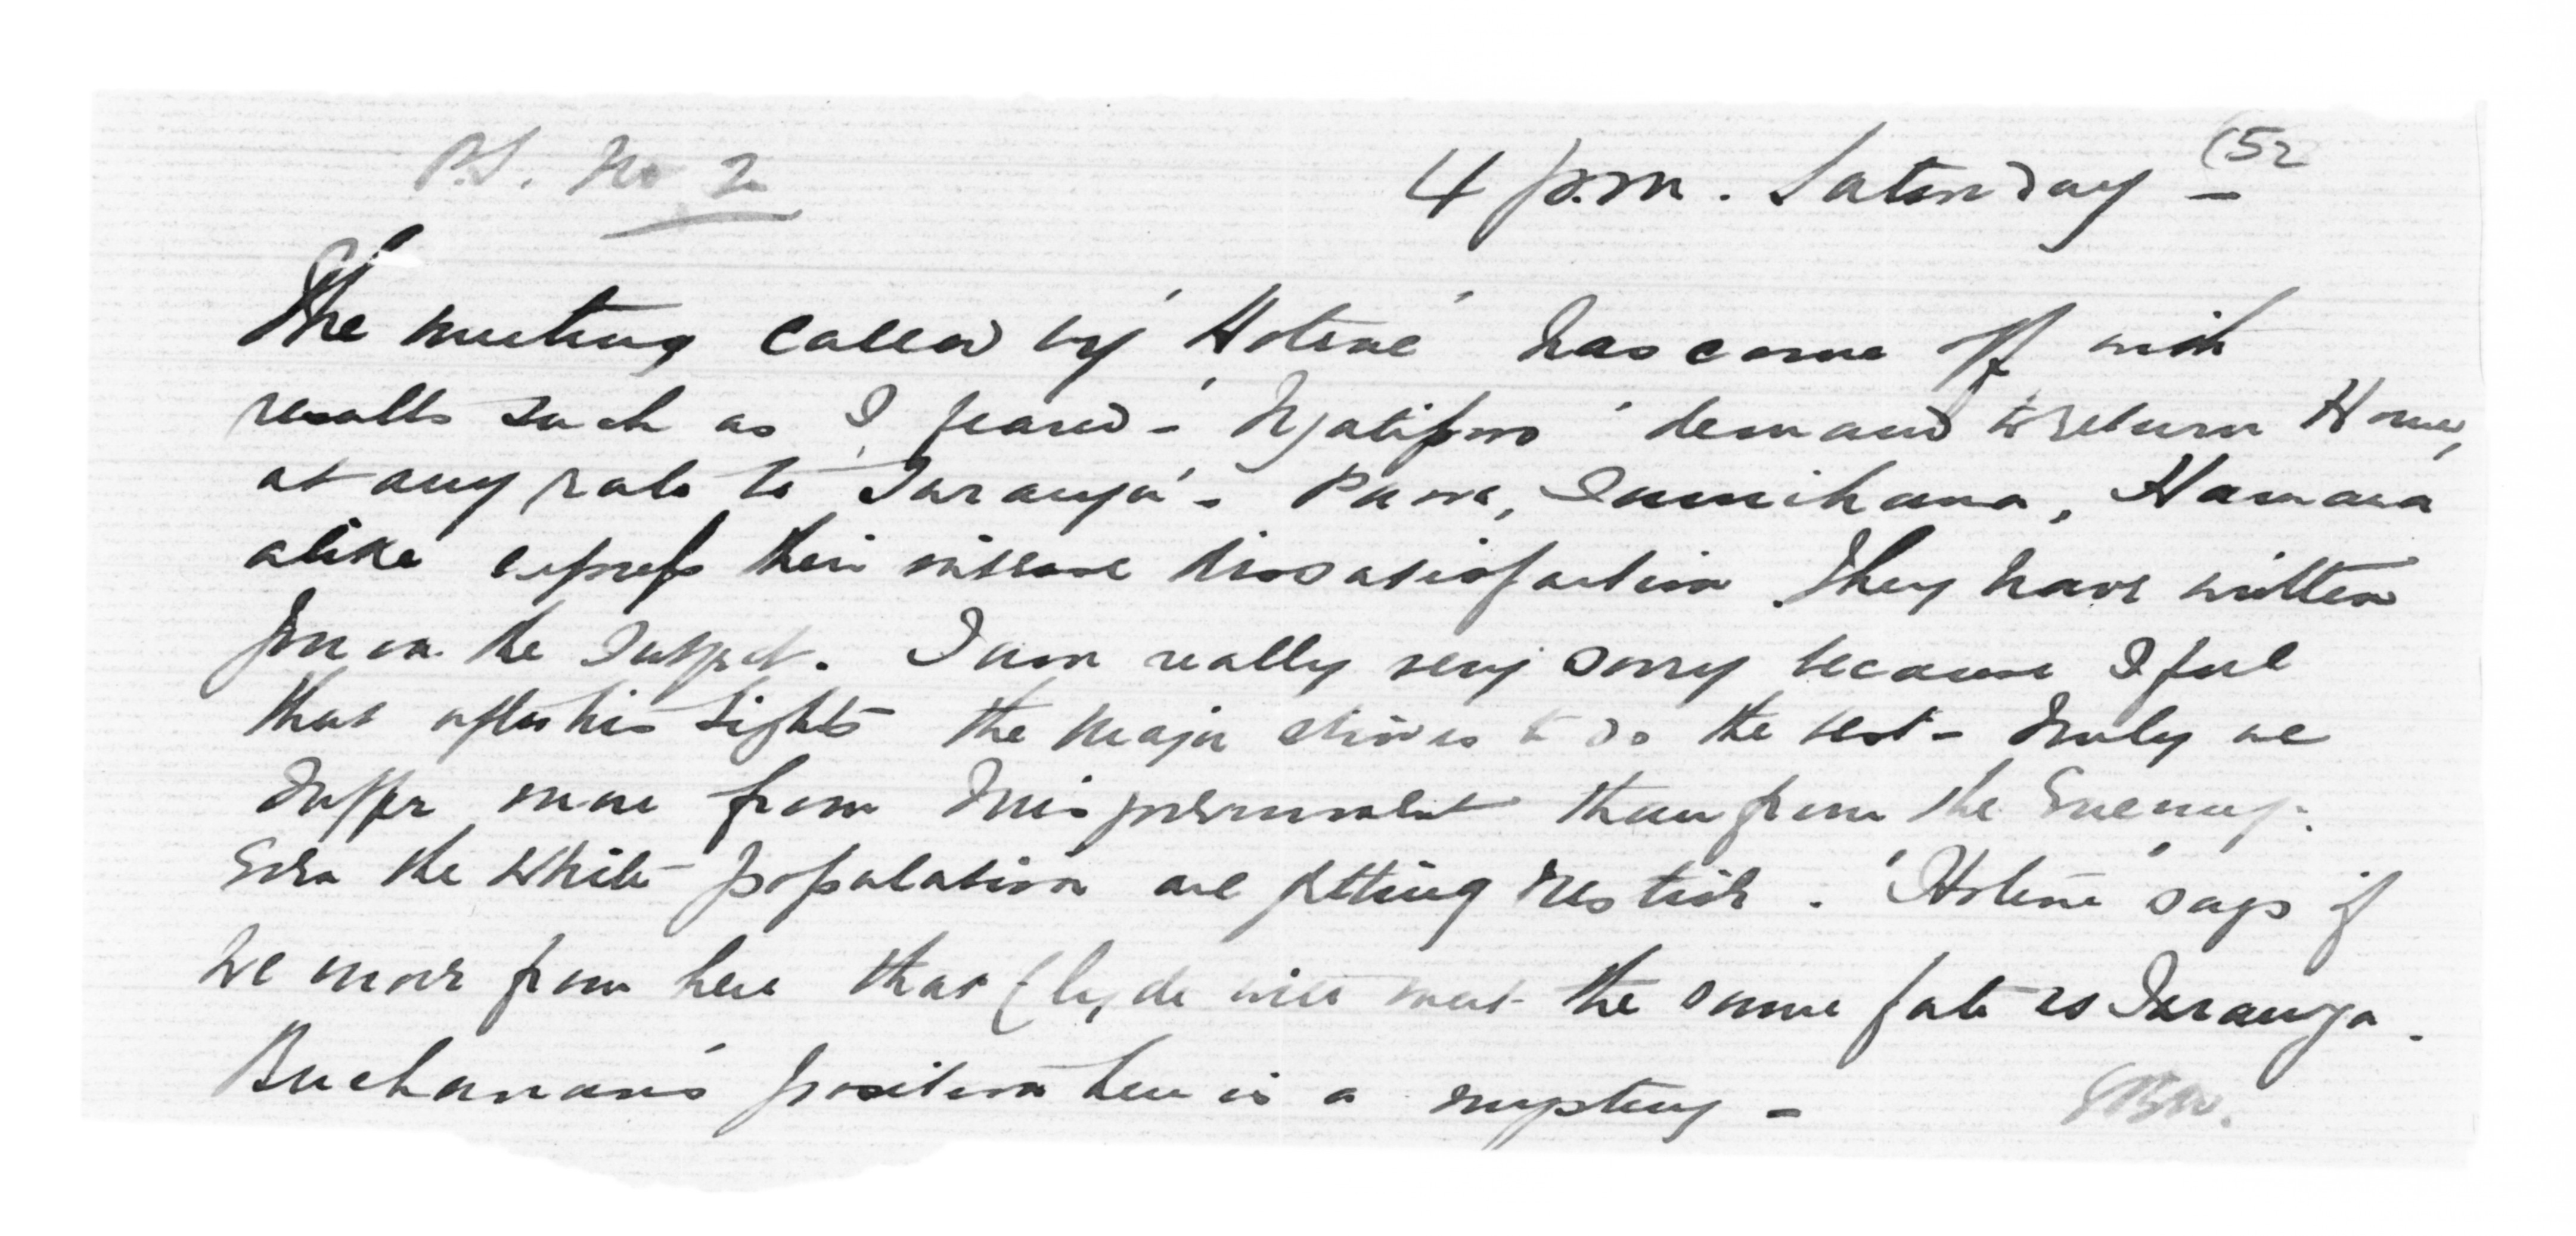 P.S. No 2
4 p.m. Saturday - (52
The meeting called by 'Hotene' has come off with
results such as I feared - 'Ngatiporo' demand to return Home,
at any rate to 'Turanga' - , Hamana
alike express their intense dissatisfaction They have written
you on the subject. I am really very sorry because I feel
that after his lights the Major strives to do the best - Truly we
suffer more from Misgovernment than from the Enemy.
Even the White population are getting restive. 'Hotene' says if
we move from here that Clyde will meet the same fate as Turanga.
Buchanan's position here is a mystery -